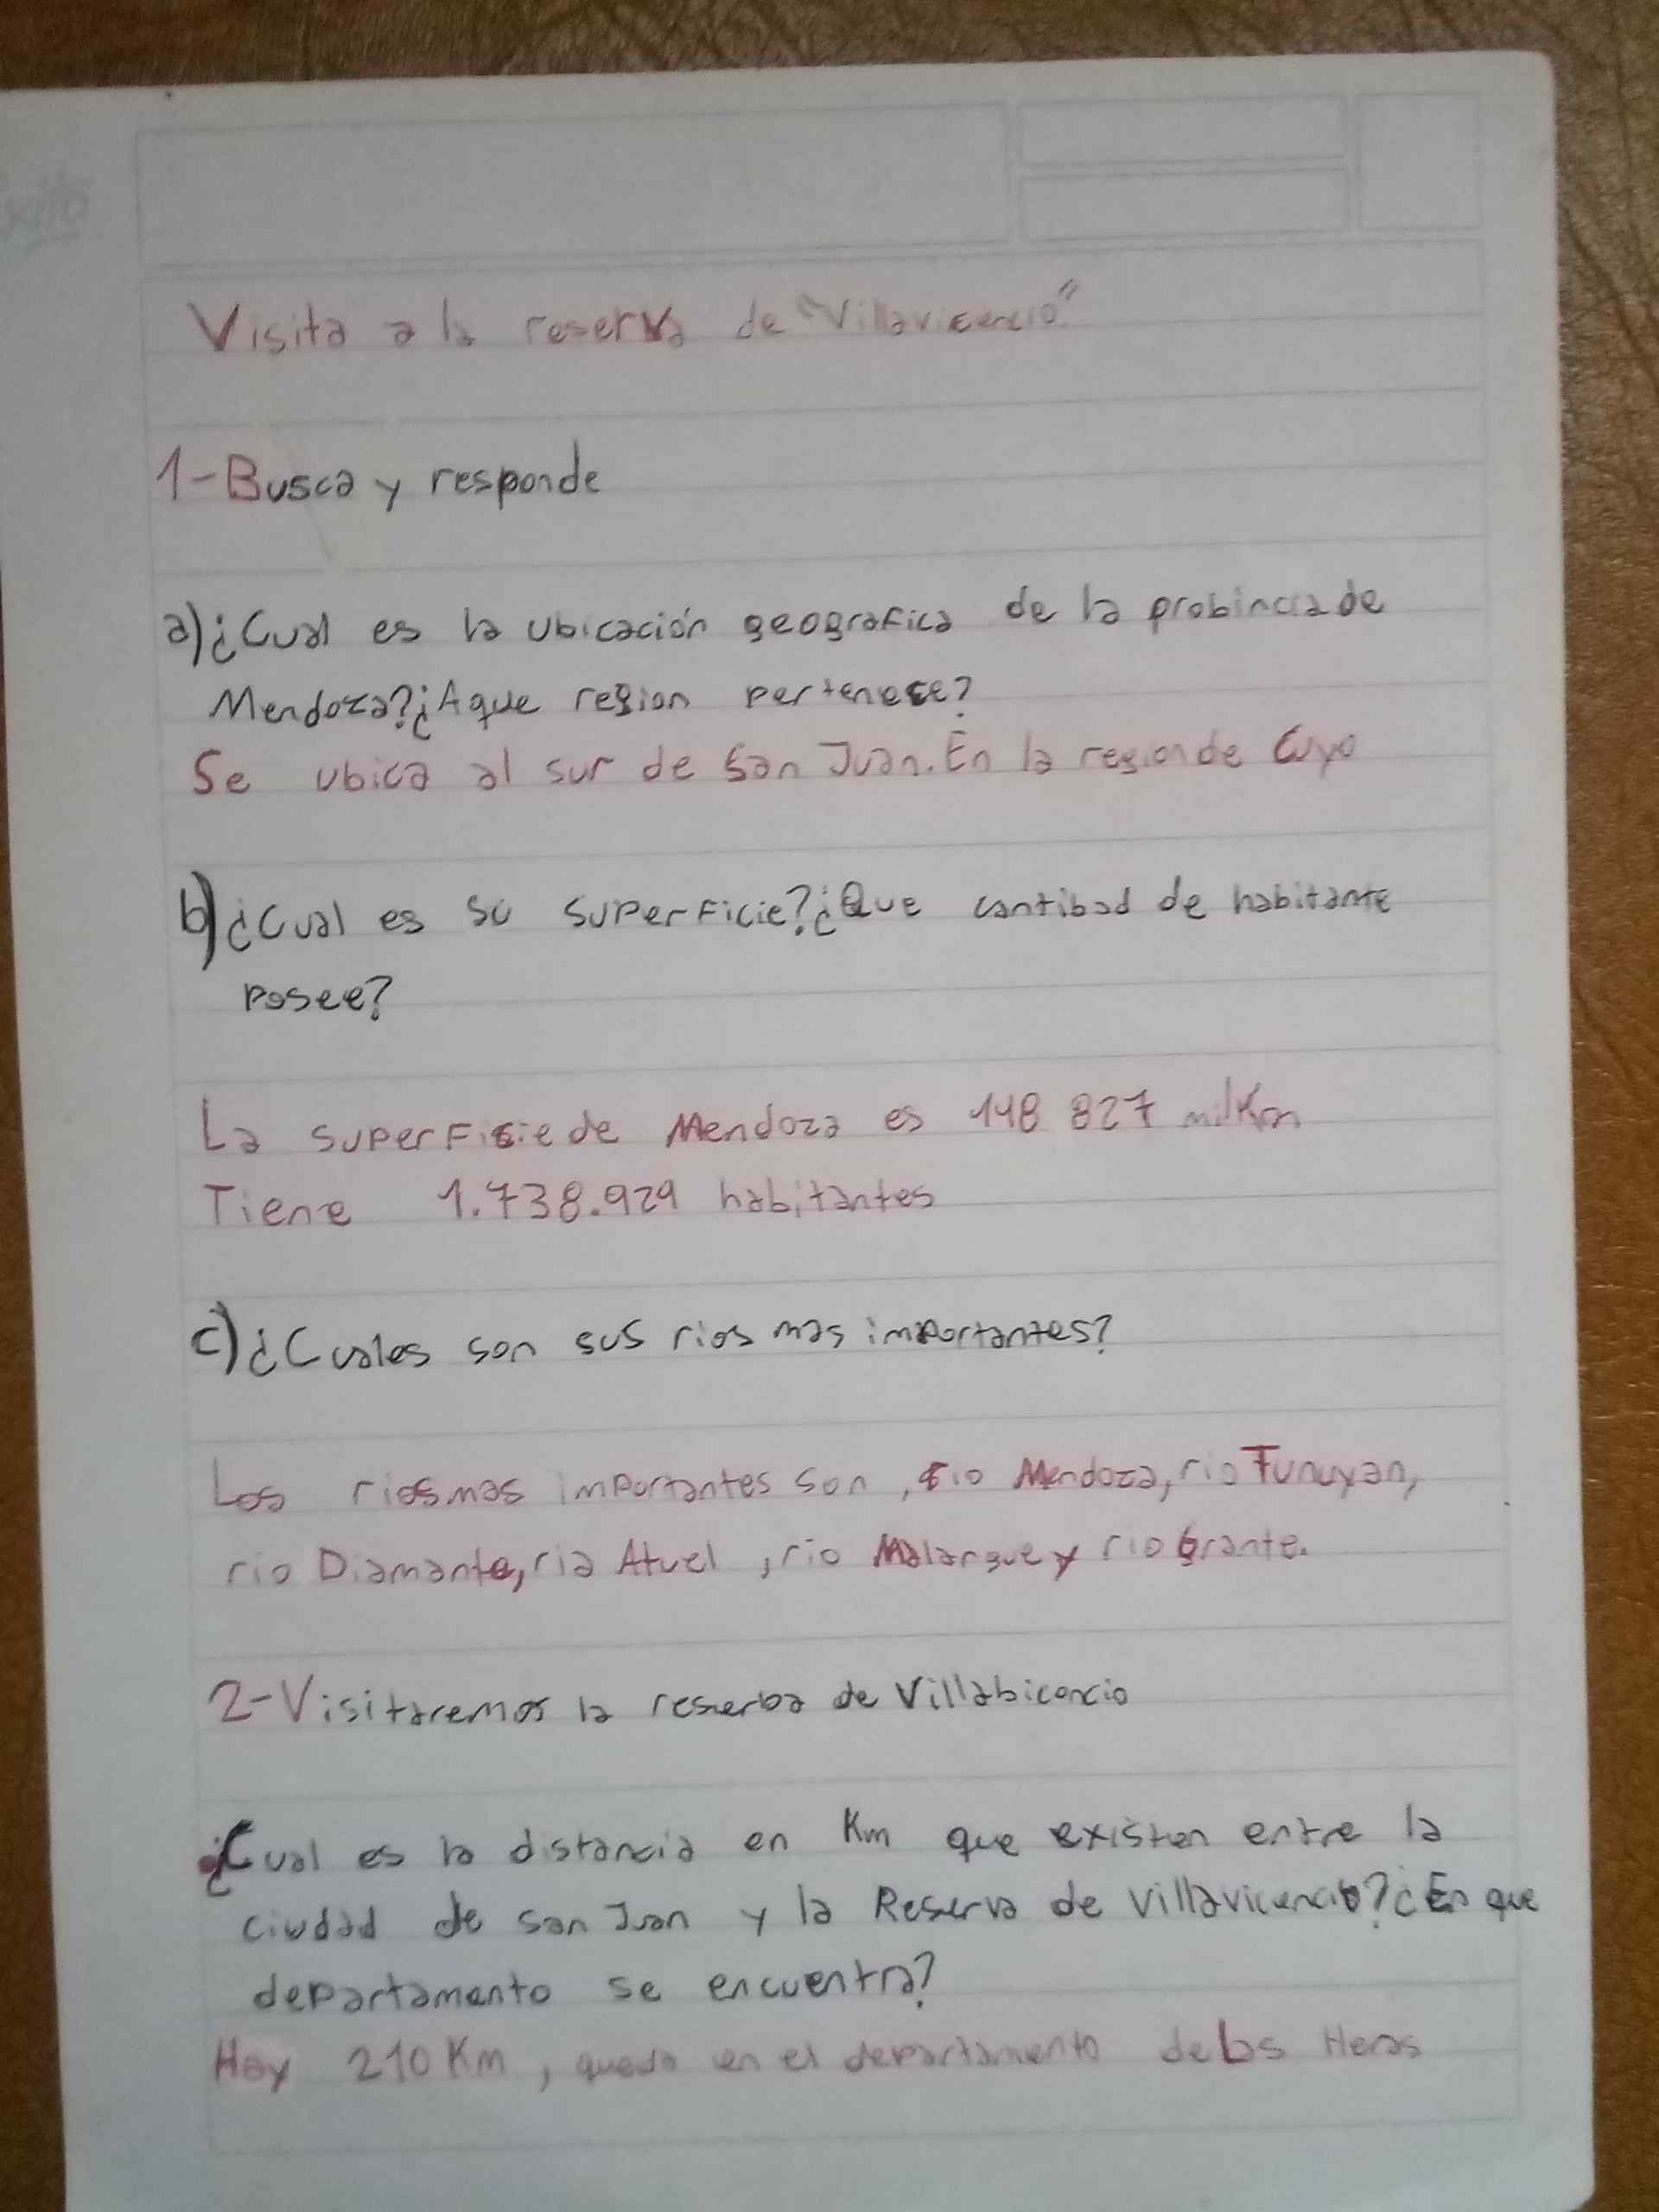 Visita a la reserva de "Villavicencio"
1-Busca y responde
a)¿Cual es la ubicación geografica de la probincia de
Mendoza?¿Aque region pertenece?
Se ubica al sur de San Juan. En la region de Cuyo
b)¿Cual es su superficie?¿Que cantibad de habitante
posee?
La superficie de Mendoza es 148 827 mil Km
Tiene 1.738.929 habitantes
c)¿Cuales son sus rios mas importantes?
Los rios mas importantes son, rio Mendoza, rio Tunuyan,
rio Diamante, ria Atuel, rio Malargue y rio Grante.
2-Visitaremos la reserba de Villabicencio
¿Cual es la distancia en Km que existen entre la
ciudad de san Juan y la Reserva de villavicencio?¿En que
departamento se encuentra?
Hay 210 Km, queda en el departamento de Las Heras